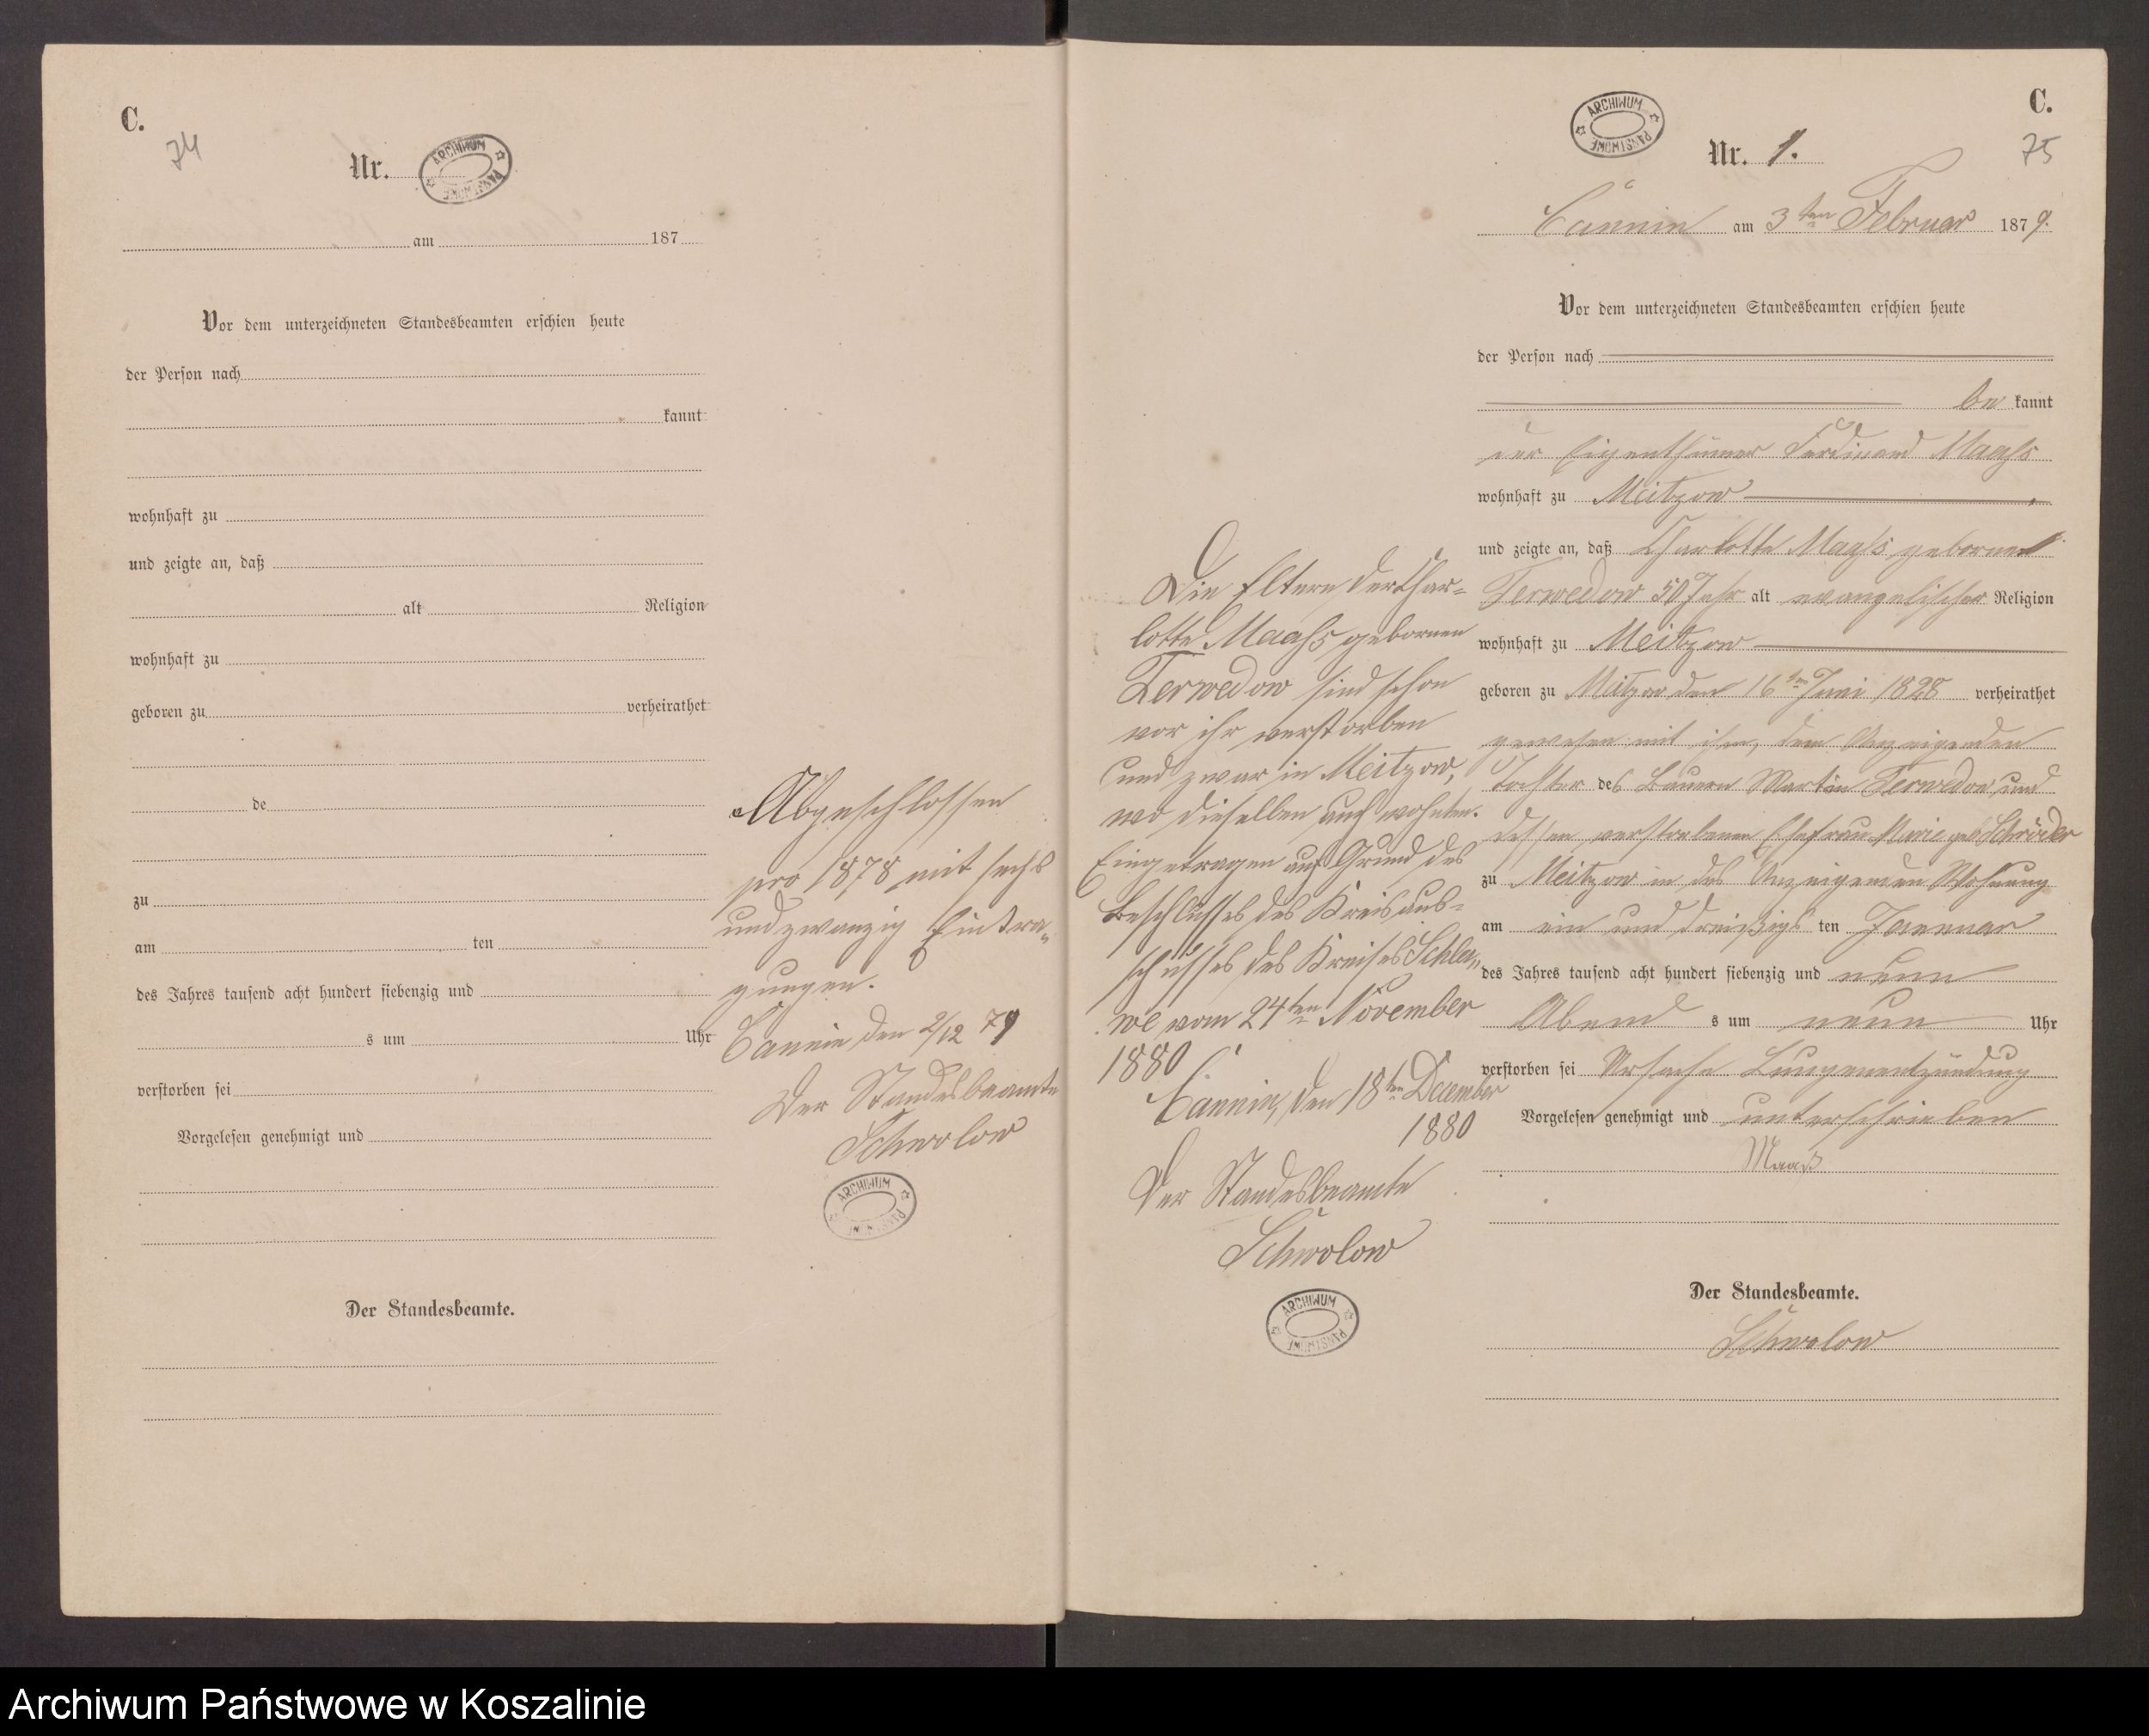 C.
74
Nr.
ARCHIWUM PAŃSTWOWE
am 187
Vor dem unterzeichneten Standesbeamten erschien heute
der Person nach
kannt
wohnhaft zu
und zeigte an, daß
alt Religion
wohnhaft zu
geboren zu verheirathet
de
zu
am ten
des Jahres tausend acht hundert siebenzig und
s um Uhr
verstorben sei
Vorgelesen genehmigt und
Der Standesbeamte.
Abgeschlossen
pro 1878 mit sechs
und zwanzig Eintra-
gungen.
Cannin den 2/12 79
Der Standesbeamte
Schwolow
ARCHIWUM PAŃSTWOWE
C.
75
ARCHIWUM PAŃSTWOWE
Nr. 1.
Cannin am 3ten Februar 1879.
Vor dem unterzeichneten Standesbeamten erschien heute
der Person nach
be kannt
der Eigenthümer Ferdinand Maahs
wohnhaft zu Meitzow
und zeigte an, daß Charlotte Maahs geborene
Terwedow 50 Jahr alt evangelischer Religion
wohnhaft zu Meitzow
geboren zu Meitzow den 16ten Juni 1828 verheirathet
gewesen mit ihm, dem Anzeigenden
Tochter des Bauern Martin Terwedow und
dessen verstorbenen Ehefrau Marie geb Schröder
zu Meitzow in des Anzeigenden Wohnung
am ein und dreißigs ten Januar
des Jahres tausend acht hundert siebenzig und neun
Abend s um neun Uhr
verstorben sei Ursache Lungenentzündung
Vorgelesen genehmigt und unterschrieben
Maaß
Der Standesbeamte.
Schwolow
Die Eltern der Char-
lotte Maahs gebornen
Terwedow sind schon
vor ihr verstorben
und zwar in Meitzow,
wo dieselben auch wohnten.
Eingetragen auf Grund des
Beschlusses des Kreisaus-
schusses des Kreises Schla-
we vom 24ten November
1880
Cannin, den 18ten December
1880
Der Standesbeamte
Schwolow
ARCHIWUM PAŃSTWOWE
Archiwum Państwowe w Koszalinie